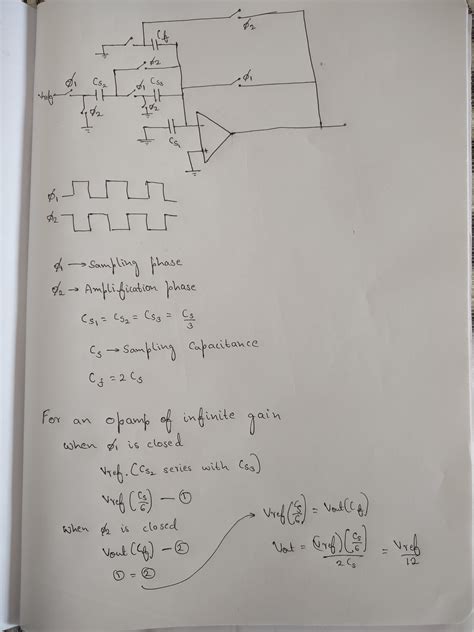 ϕ2
Cf
ϕ2
ϕ1
Vref
ϕ1
Cs2
ϕ1
Cs3
ϕ2
ϕ2
Cs1
-
+
ϕ1
ϕ2
ϕ1 → Sampling phase
ϕ2 → Amplification phase
Cs1 = Cs2 = Cs3 = Cs/3
Cs → Sampling Capacitance
Cf = 2Cs
For an opamp of infinite gain
when ϕ1 is closed
Vref. (Cs2 series with Cs3)
Vref (Cs/6) — ①
when ϕ2 is closed
Vout (Cf) — ②
① = ②
Vref (Cs/6) = Vout (Cf)
Vout = (Vref) (Cs/6) / 2Cs = Vref/12